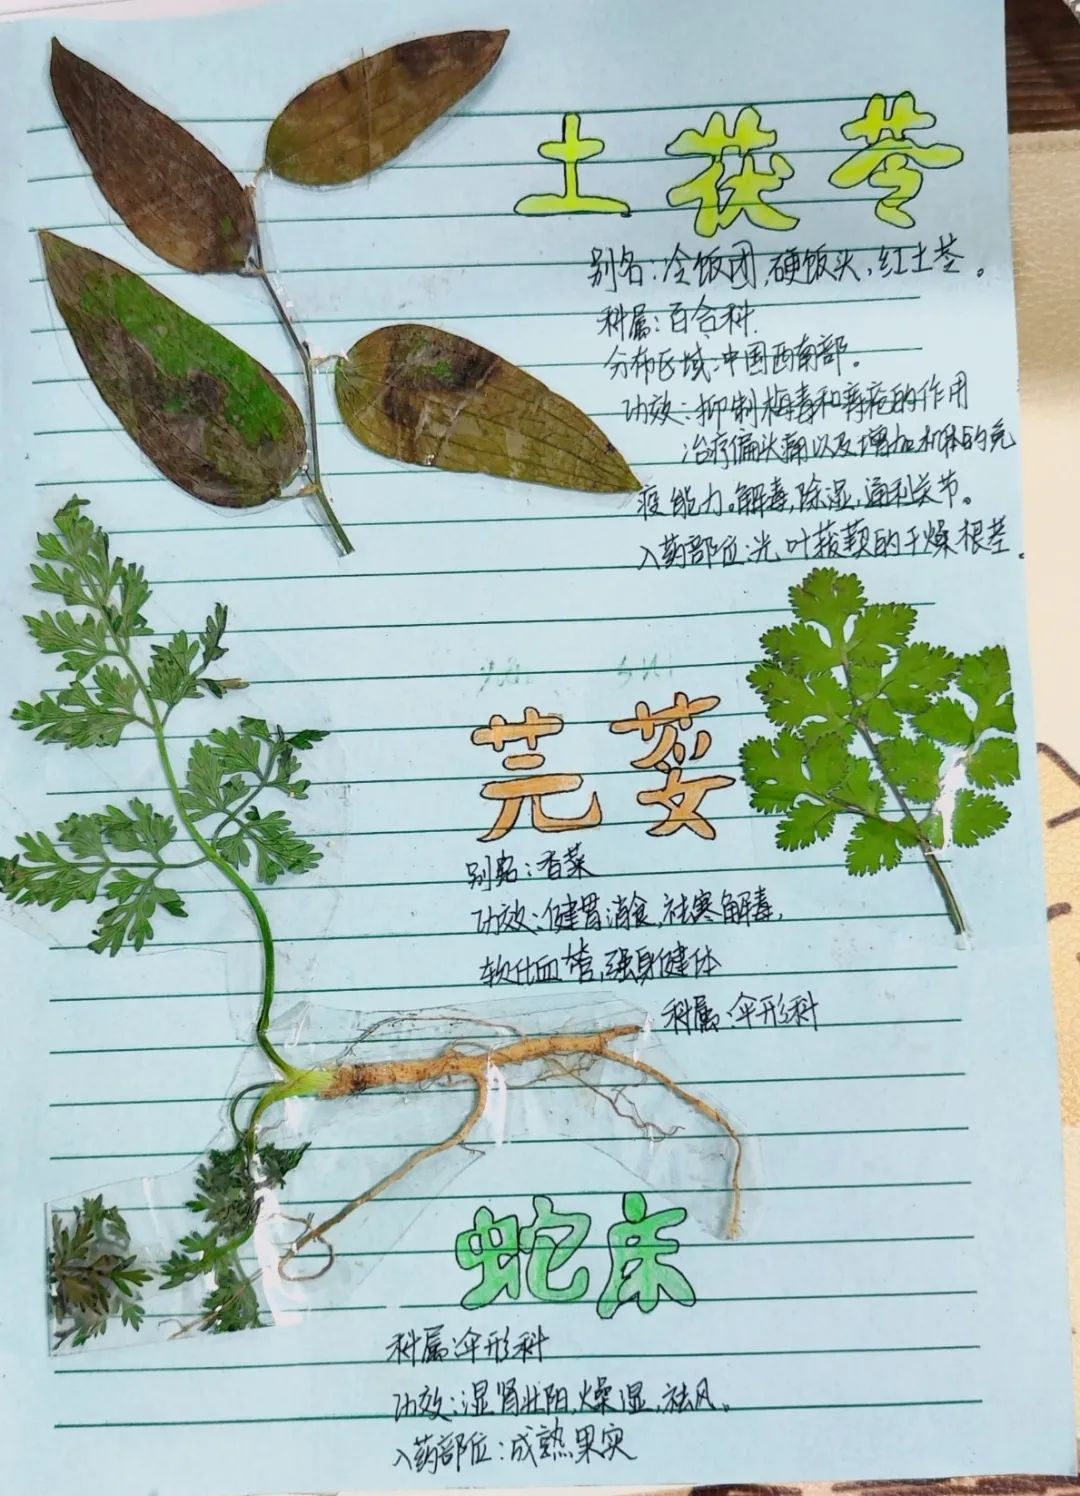 土茯苓
别名：冷饭团，硬饭头，红土苓。
科属：百合科.
分布区域：中国西南部。
功效：抑制梅毒和痔疮的作用
治疗偏头痛以及增加机体的免
疫能力。解毒，除湿，通利关节。
入药部位：光叶菝葜的干燥根茎.
芫荽
别名：香菜
功效：健胃消食，祛寒解毒，
软化血管，强身健体
科属：伞形科
蛇床
科属：伞形科
功效：湿肾壮阳，燥湿，祛风。
入药部位：成熟果实